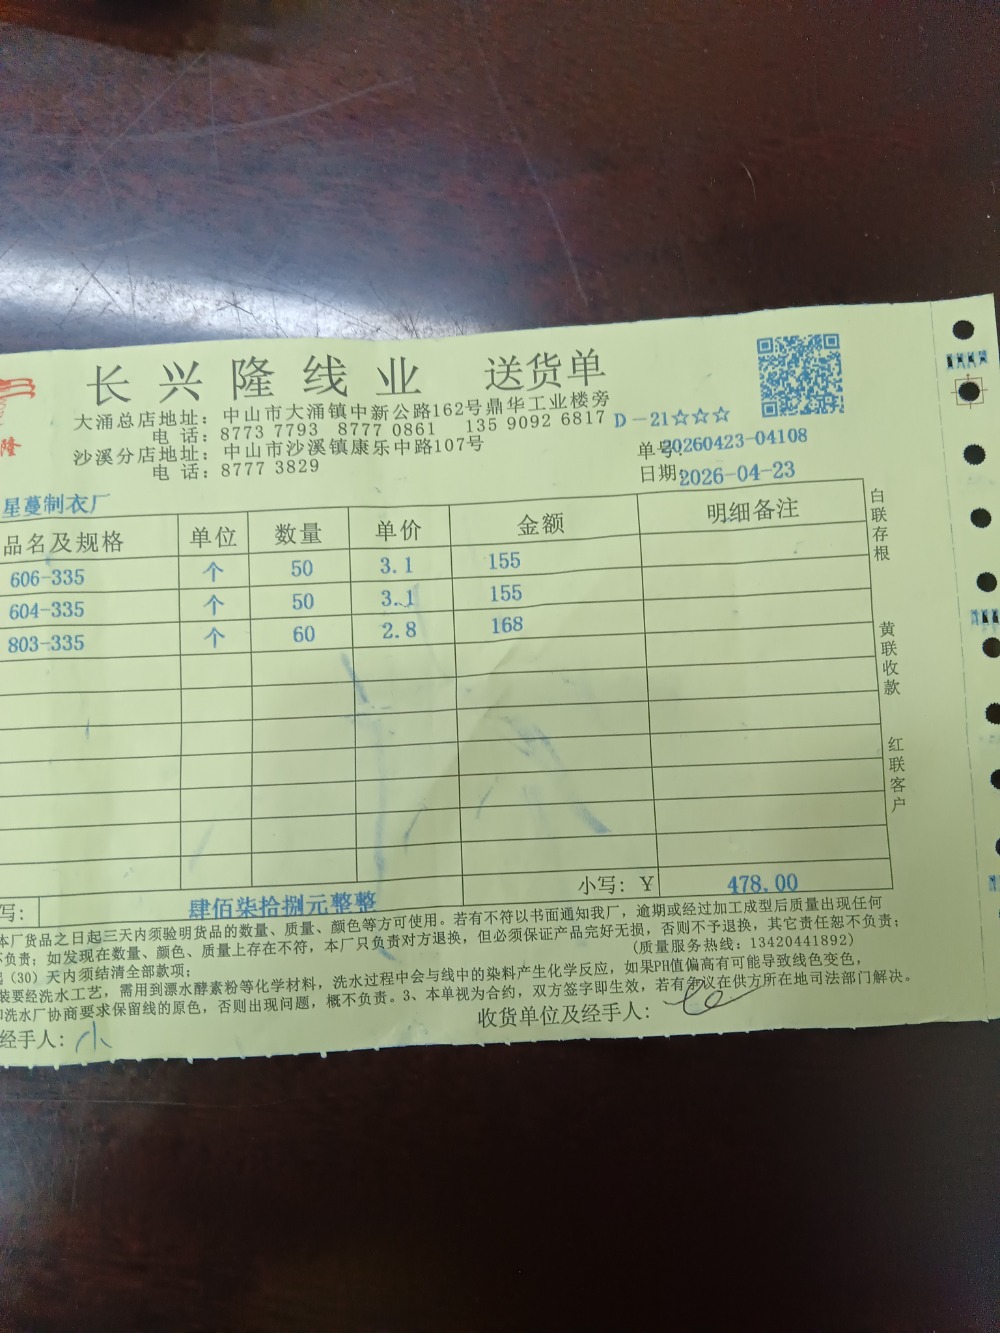 长兴隆线业 送货单
隆
大涌总店地址：中山市大涌镇中新公路162号鼎华工业楼旁
电 话：8773 7793 8777 0861 135 9092 6817
D-21☆☆☆
沙溪分店地址：中山市沙溪镇康乐中路107号
电 话：8777 3829
单号20260423-04108
日期:2026-04-23
星蔓制衣厂
品名及规格 单位 数量 单价 金额 明细备注
606-335 个 50 3.1 155
604-335 个 50 3.1 155
803-335 个 60 2.8 168
白联存根
黄联收款
红联客户
写： 肆佰柒拾捌元整整 小写：￥ 478.00
本厂货品之日起三天内须验明货品的数量、质量、颜色等方可使用。若有不符以书面通知我厂，逾期或经过加工成型后质量出现任何
不负责；如发现在数量、颜色、质量上存在不符，本厂只负责对方退换，但必须保证产品完好无损，否则不予退换，其它责任恕不负责；
（30）天内须结清全部款项； （质量服务热线：13420441892）
装要经洗水工艺，需用到漂水酵素粉等化学材料，洗水过程中会与线中的染料产生化学反应，如果PH值偏高有可能导致线色变色，
洗水厂协商要求保留线的原色，否则出现问题，概不负责。3、本单视为合约，双方签字即生效，若有争议在供方所在地司法部门解决。
经手人：小 收货单位及经手人：